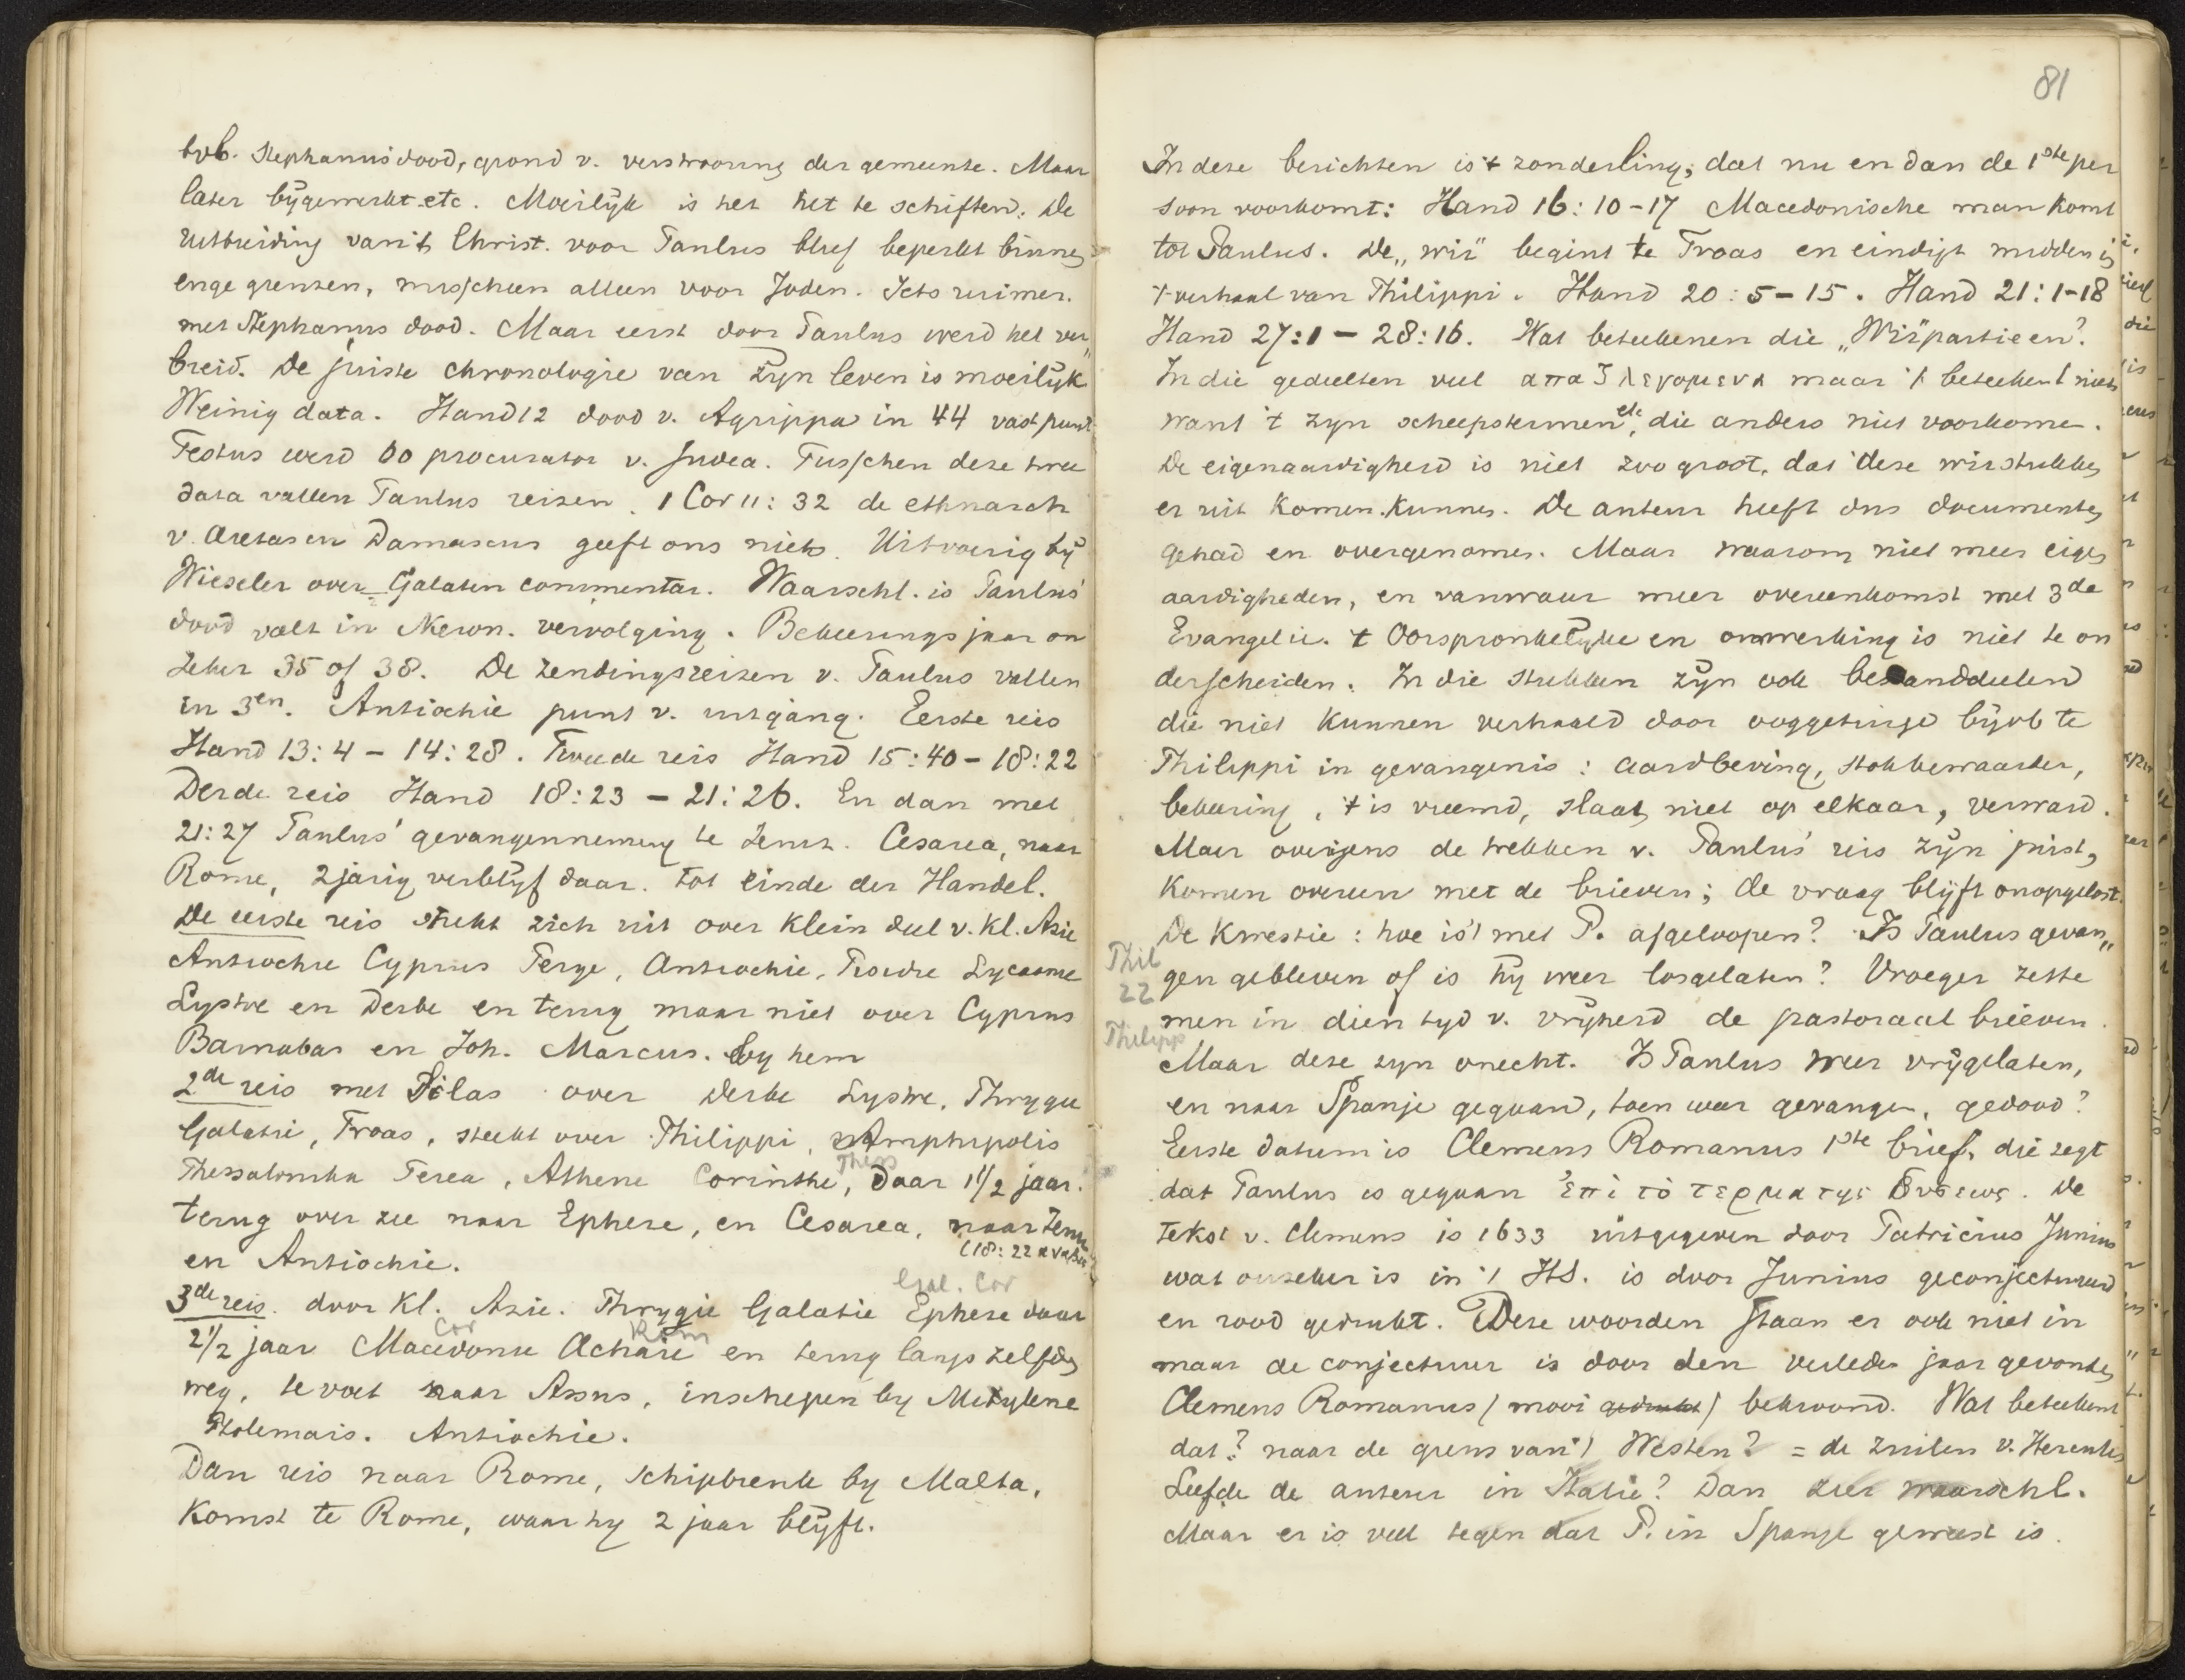 bvb. Stephanus dood, grond v. verstrooing der gemeente. Maar
later bijgewerkt etc. Moeilijk is het het te schiften. De
uitbreiding van 't Christ. voor Paulus bleef beperkt binnen
enge grenzen, misschien alleen voor Joden. Iets ruimer
met Stephanus dood. Maar eerst door Paulus werd het ver„
breid. De juiste chronologie van zijn leven is moeilijk
Weinig data. Hand 12 dood v. Agrippa in 44 vast punt
Festus werd 60 procurator v. Judea. Tusschen deze twee
data vallen Paulus reizen. 1 Cor 11: 32 de ethnarch
v. Aretas en Damascus geeft ons niets. Uitvoerig bij
Wieseler over Galaten commentar. Waarschl. is Paulus'
dood valt in Neron. vervolging. Bekeeringsjaar on
zeker 35 of 38. De zendingsreizen v. Paulus vallen
in 3en. Antiochie punt v. uitgang. Eerste reis
Hand 13:4 – 14:28. Tweede reis Hand 15:40 – 18:22
Derde reis Hand 18:23 – 21:26. En dan met
21:27 Paulus' gevangenneming te Jeruz. Cesarea, naar
Rome, 2jarig verblijf daar. tot einde der Handel.
De eerste reis strekt zich uit over klein deel v. Kl. Azie
Antiochie Cyprus Perge, Antiochie, Lycaonie
Lystre en Derbe en terug maar niet over Cyprus
Barnabas en Joh. Marcus. by hem
2de reis met Silas over Derbe Lystre, Phrygie
Galatie, Troas, steekt over Philippi, Amphipolis
Thess
Thessalonika Berea, Athene Corinthe, Daar 1 1/2 jaar.
terug over zee naar Ephese, en Cesarea, naar Jeru
(18:22 αναβας
en Antiochie.
Gal. Cor
3de reis. door Kl. Azie. Phrygie Galatie Ephese daar
Cor Rom
2 1/2 jaar Macedonie Achaie en terug langs zelfden
weg, te voet naar Assus, inschepen by Mitylene
Ptolemais. Antiochie.
Dan reis naar Rome, schipbreuk by Malta,
Komst te Rome, waar hy 2 jaar blijft.
81
In deze berichten is 't zonderling; dat nu en dan de 1ste per
soon voorkomt: Hand 16:10–17 Macedonische man komt
tot Paulus. De „wij" begint te Troas en eindigt midden in
't verhaal van Philippi. Hand 20:5–15. Hand 21:1–18
Hand 27:1 – 28:16. Wat beteekenen die „Wij" partieen?
In die gedeelten veel απαξ λεγομενα maar 't beteekent niets
want 't zyn scheepstermen etc, die anders niet voorkomen.
De eigenaardigheid is niet zoo groot, dat deze wijstukken
er uit komen kunnen. De auteur heeft dus documenten
gehad en overgenomen. Maar waarom niet meer eigen
aardigheden, en vanwaar meer overeenkomst met 3de
Evangelie. 't Oorspronkelijke en omwerking is niet te on
derscheiden. In die stukken zijn ook bestanddeelen
die niet kunnen verhaald door ooggetuige bijvb te
Philippi in gevangenis: aardbeving, stokbewaarder,
bekeering, 't is vreemd, slaat niet op elkaar, verward.
Maar overigens de trekken v. Paulus' reis zijn juist,
Komen overeen met de brieven; de vraag blijft onopgelost.
De Kwestie: hoe is 't met P. afgeloopen? Is Paulus gevan„
Phil
22
gen gebleven of is hy weer losgelaten? Vroeger zette
men in dien tyd v. vrijheid de pastoraal brieven.
Philipp
Maar deze zyn onecht. Is Paulus weer vrijgelaten,
en naar Spanje gegaan, toen weer gevangen, gedood?
Eerste datum is Clemens Romanus 1ste brief, die zegt
dat Paulus is gegaan ἐπὶ τὸ τερμα της δυσεως. De
tekst v. Clemens is 1633 uitgegeven door Patricius Junius
wat onzeker is in 't HS. is door Junius geconjectureerd
en rood gedrukt. Deze woorden staan er ook niet in
maar de conjectuur is door den verleden jaar gevonden
Clemens Romanus (mooi gedrukt) bekroond. Wat beteekent
dat? naar de grens van 't Westen? = de zuilen v. Hercules
Leefde de auteur in Italie? Dan zeer waarschl.
Maar er is veel tegen dat P. in Spanje geweest is.